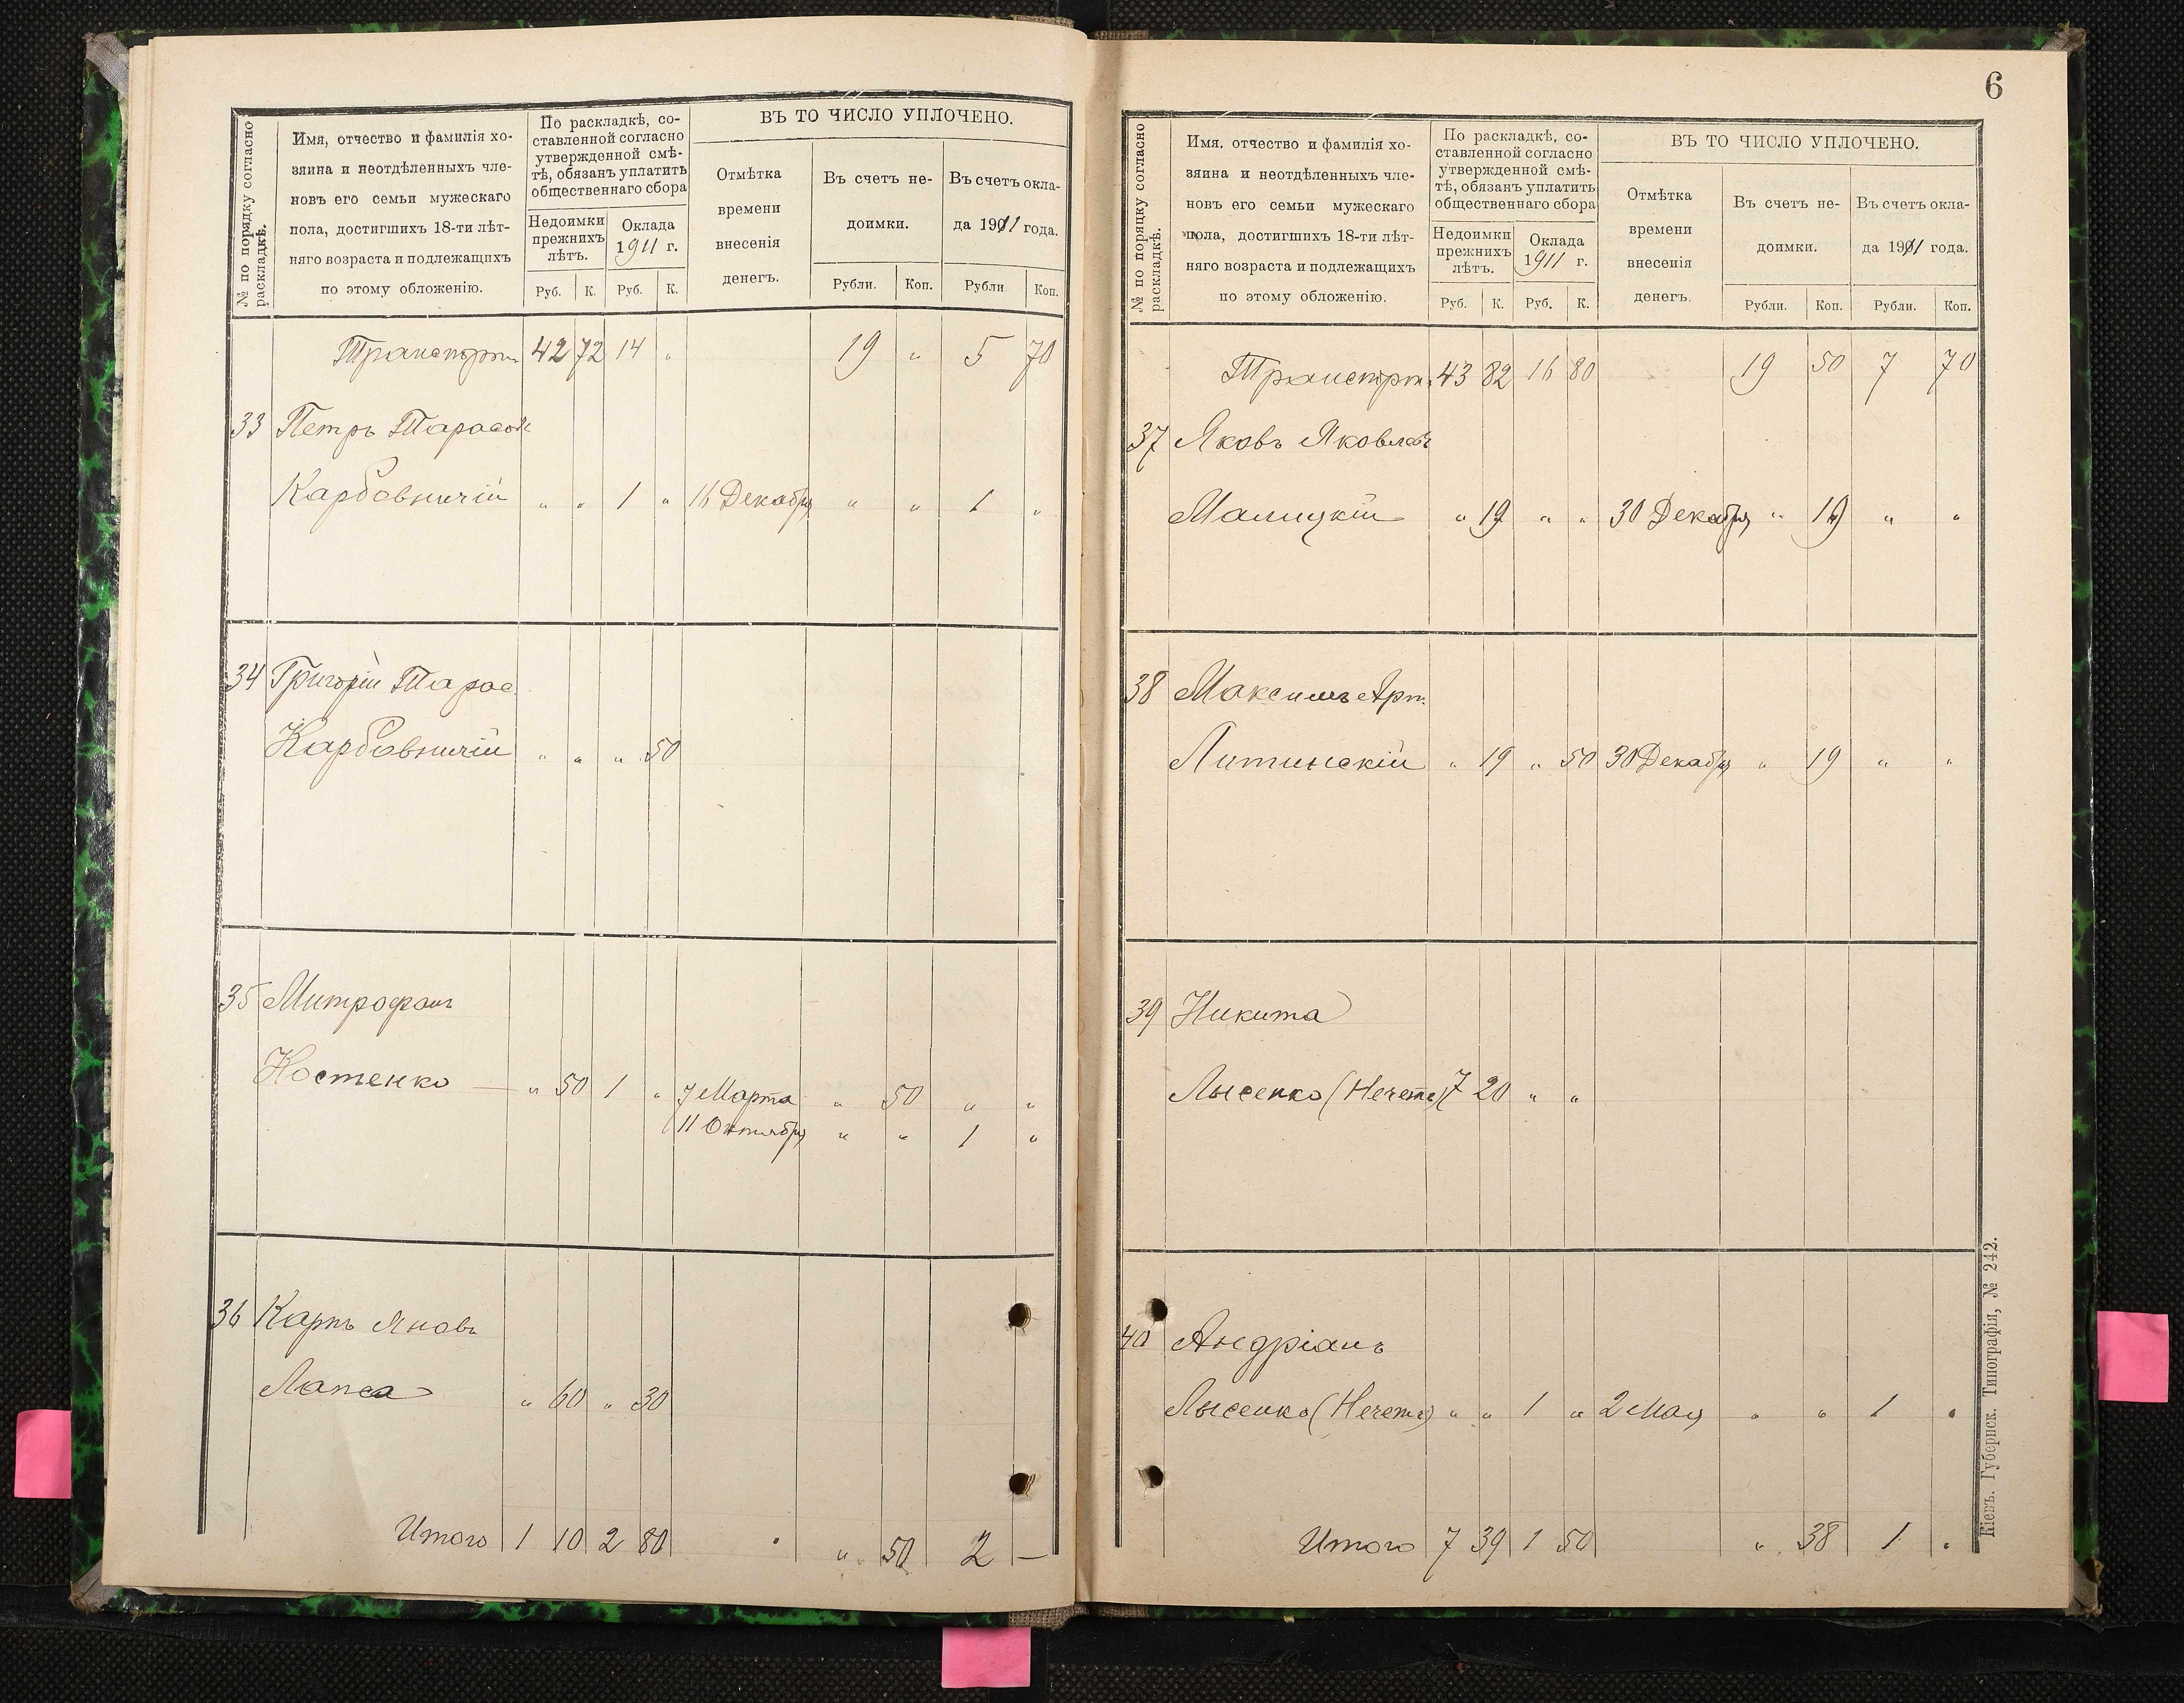 № по порядку согласно раскладкѣ.
Имя, отчество и фамилія хо-
зяина и неотдѣленныхъ чле-
новъ его семьи мужескаго
пола, достигшихъ 18-ти лѣт-
няго возраста и подлежащихъ
по этому обложенію.
По раскладкѣ, со-
ставленной согласно
утвержденной смѣ-
тѣ, обязанъ уплатить
общественнаго сбора
Недоимки
прежнихъ
лѣтъ.
Оклада
1911 г.
Руб. К. Руб. К.
ВЪ ТО ЧИСЛО УПЛОЧЕНО.
Отмѣтка
времени
внесенія
денегъ.
Въ счетъ не-
доимки.
Рубли. Коп.
Въ счетъ окла-
да 1911 года.
Рубли. Коп.
Транспортъ 42 72 14 „ 19 „ 5 70
33 Петръ Тарасов
Карбовничій „ „ 1 „ 16 Декабря „ „ 1 „
34 Григорій Тарас
Карбовничій „ „ „ 50
35 Митрофанъ
Костенко — „ 50 1 „ 7 Марта „ 50 „ „
11 Октября „ „ 1 „
36 Карпъ Яковъ
Лапса „ 60 „ 30
Итого 1 10 2 80 „ 50 2 —
6
№ по порядку согласно раскладкѣ.
Имя. отчество и фамилія хо-
зяина и неотдѣленныхъ чле-
новъ его семьи мужескаго
пола, достигшихъ 18-ти лѣт-
няго возраста и подлежащихъ
по этому обложенію.
По раскладкѣ, со-
ставленной согласно
утвержденной смѣ-
тѣ, обязанъ уплатить
общественнаго сбора
Недоимки
прежнихъ
лѣтъ.
Оклада
1911 г.
Руб. К. Руб. К.
ВЪ ТО ЧИСЛО УПЛОЧЕНО.
Отмѣтка
времени
внесенія
денегъ.
Въ счетъ не-
доимки.
Рубли. Коп.
Въ счетъ окла-
да 1911 года.
Рубли. Коп.
Транспортъ 43 82 16 80 19 50 7 70
37 Яковъ Яковлев
Малицкій „ 19 „ „ 30 Декабря „ 19 „ „
38 Максимъ Арт.
Литинскій „ 19 „ 50 30 Декабря „ 19 „ „
39 Никита
Лысенко (Нечета) 7 20 „ „
40 Андріанъ
Лысенко (Нечета) „ „ 1 „ 2 Мая „ „ 1 „
Итого 7 39 1 50 „ 38 1 „
Кіевъ. Губернск. Типографія, № 242.